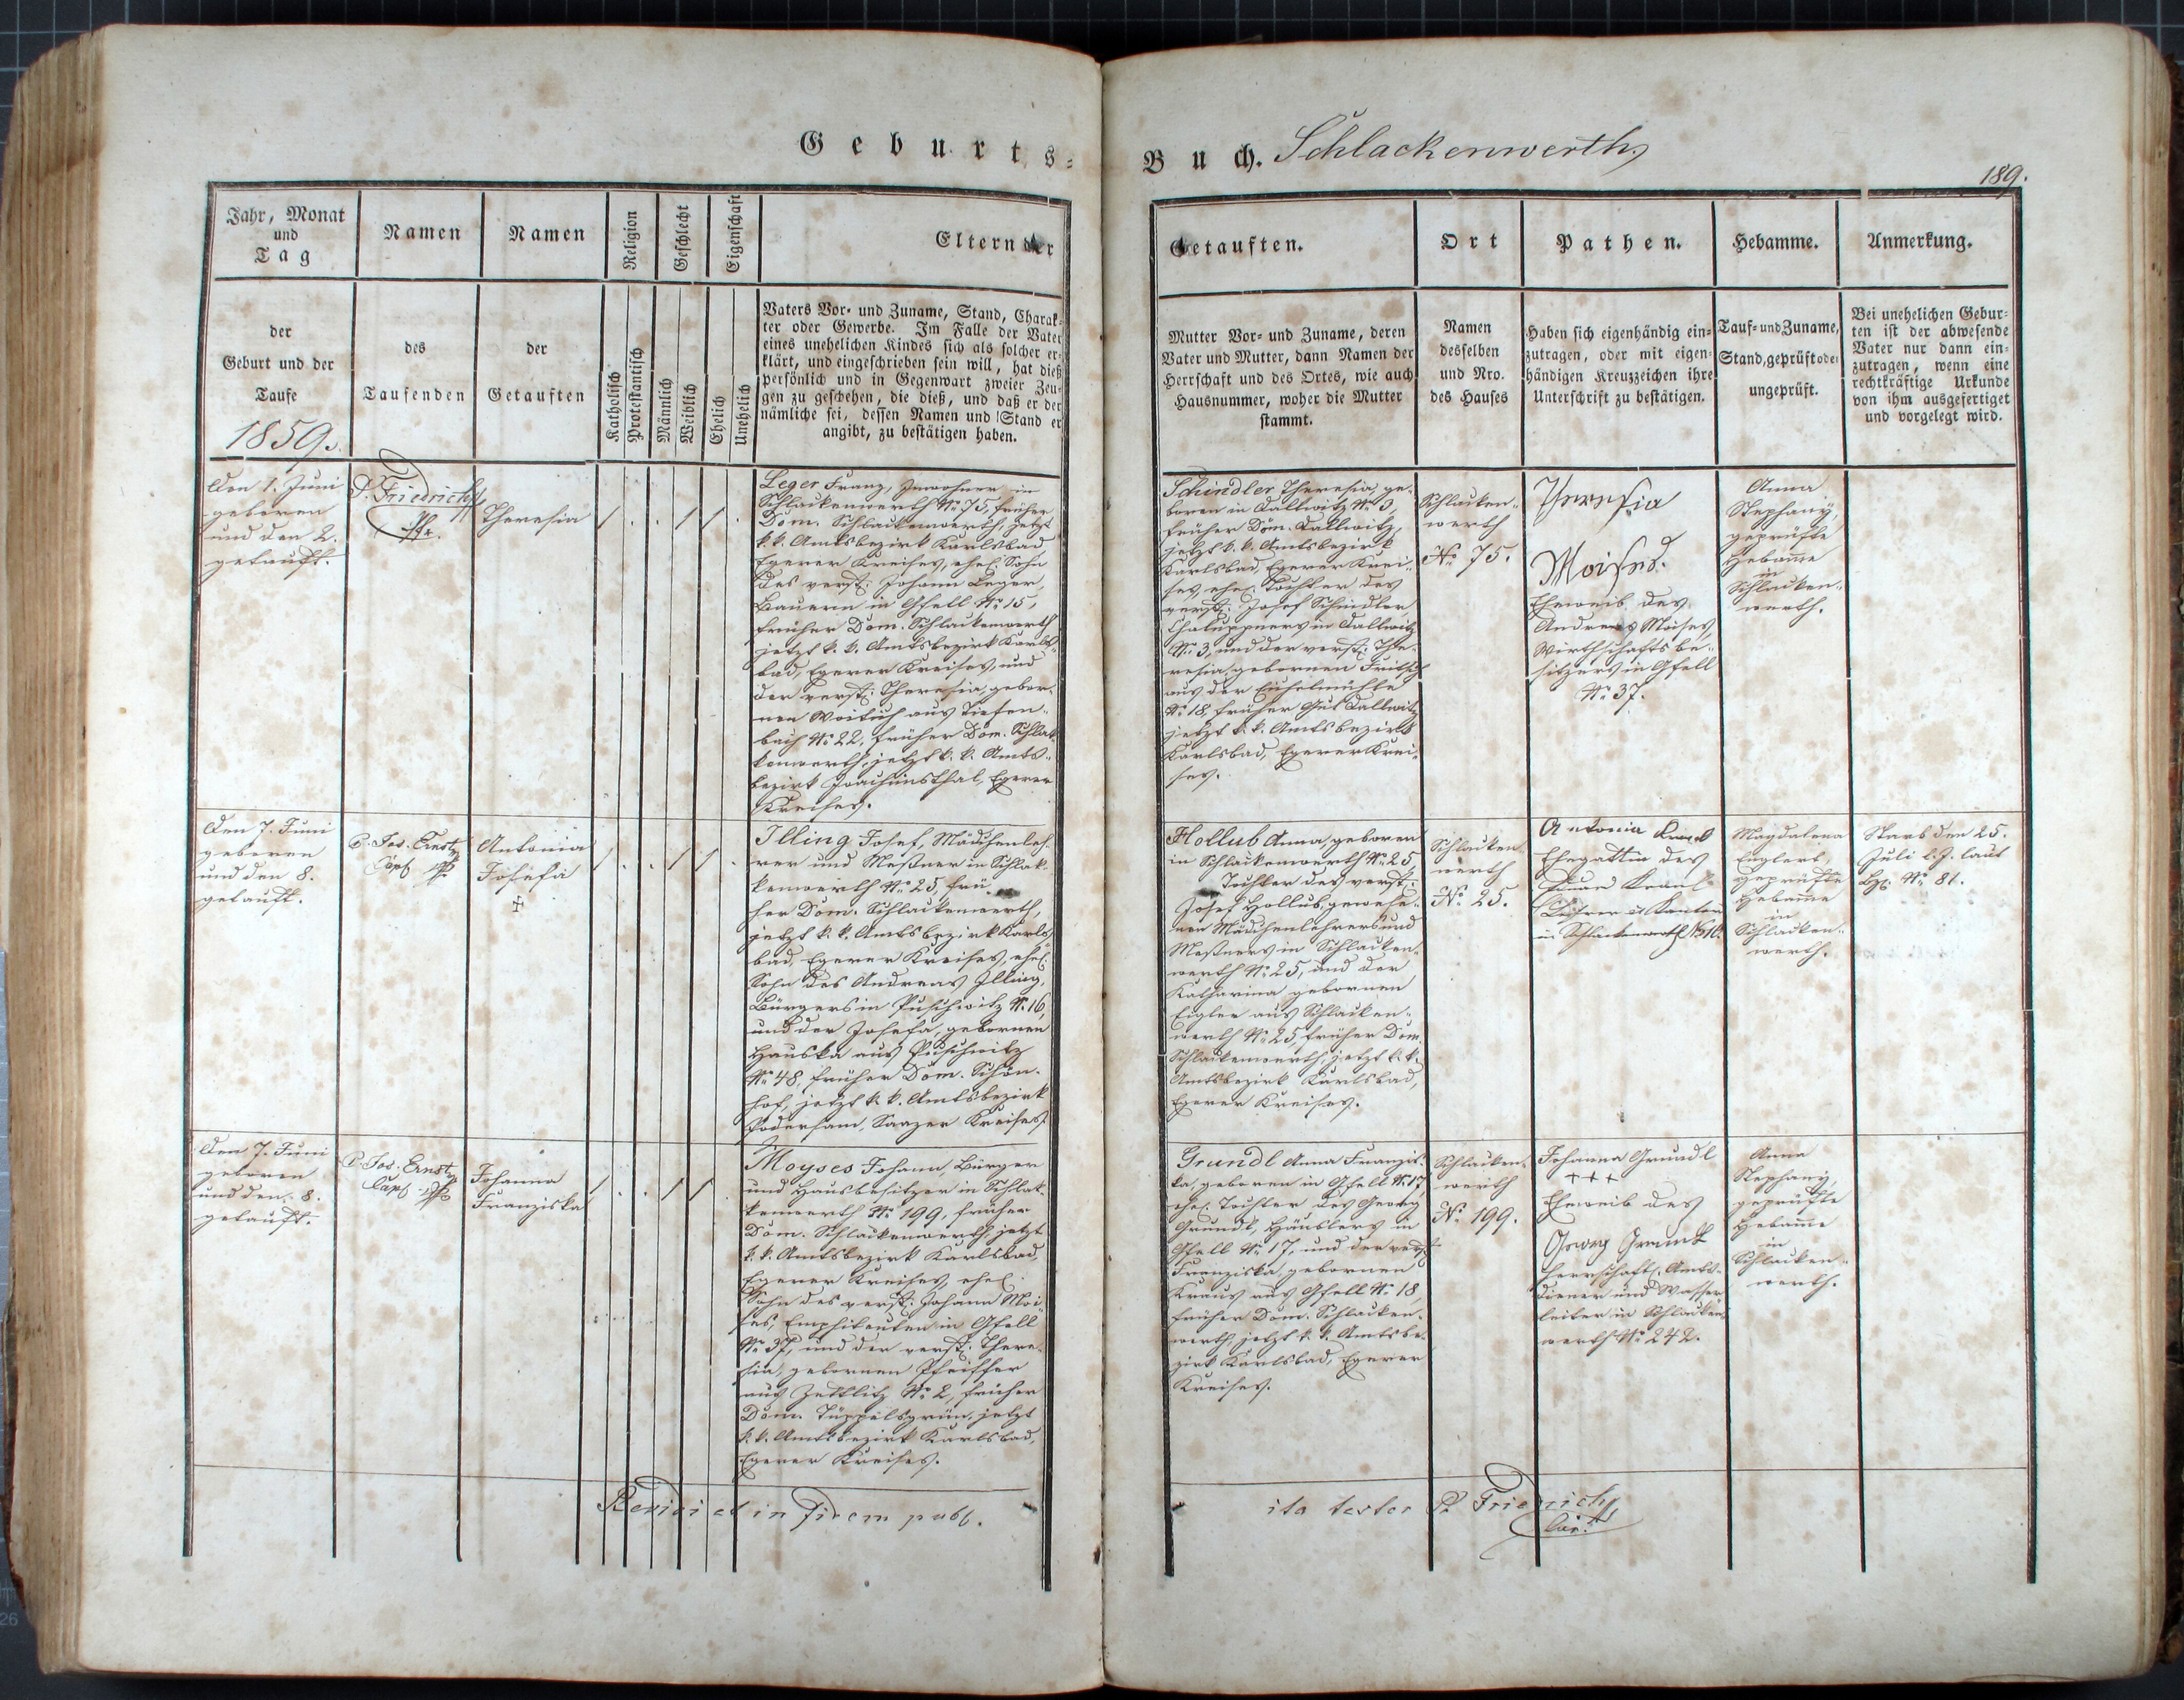 Geburts-
Buch. Schlackenwerth
189.
Jahr, Monat
und
Tag
Namen
Namen
Religion
Geschlecht
Eigenschaft
Eltern der
der
Geburt und der
Taufe
1859.
des
Taufenden
der
Getauften
Katholisch
Protestantisch
Männlich
Weiblich
Ehelich
Unehelich
Vaters Vor- und Zuname, Stand, Charak-
ter oder Gewerbe. Im Falle der Vater
eines unehelichen Kindes sich als solcher er-
klärt, und eingeschrieben sein will, hat dieß
persönlich und in Gegenwart zweier Zeu-
gen zu geschehen, die dieß, und daß er der
nämliche sei, dessen Namen und Stand er
angibt, zu bestätigen haben.
Getauften.
Ort
Pathen.
Hebamme.
Anmerkung.
Mutter Vor- und Zuname, deren
Vater und Mutter, dann Namen der
Herrschaft und des Ortes, wie auch
Hausnummer, woher die Mutter
stammt.
Namen
desselben
und Nro.
des Hauses
Haben sich eigenhändig ein-
zutragen, oder mit eigen-
händigen Kreuzzeichen ihre
Unterschrift zu bestätigen.
Tauf- und Zuname,
Stand, geprüft oder
ungeprüft.
Bei unehelichen Gebur-
ten ist der abwesende
Vater nur dann ein-
zutragen, wenn eine
rechtkräftige Urkunde
von ihm ausgefertiget
und vorgelegt wird.
Den 1. Juni
geboren
und den 2.
getauft.
P. Friedrich
Theresia
Leger Franz, Inwohner in
Schlackenwerth No 75, früher
Dom. Schlackenwerth, jetzt
k. k. Amtsbezirk Karlsbad
Egerer Kreises, ehel. Sohn
des verst. Johann Leger,
Bauern in Gfell No 15,
früher Dom. Schlackenwerth
jetzt k. k. Amtsbezirk Karls-
bad, Egerer Kreises, und
der verst. Theresia, gebor-
nen Woitich aus Tiefen-
bach No 22, früher Dom. Schlak-
kenwerth, jetzt k. k. Amts-
bezirk Joachimsthal, Egerer
Kreises.
Schindler Theresia, ge-
boren in Dallwitz No 3,
früher Dom. Dallwitz,
jetzt k. k. Amtsbezirk
Karlsbad, Egerer Krei-
ses, ehel. Tochter des
verst. Josef Schindler
Chaluppners in Dallwitz
No 3, und der verst. The-
resia, gebornen Fritsch
aus der
No 18, früher Gut Dallwitz
jetzt k. k. Amtsbezirk
Karlsbad, Egerer Krei-
ses.
Schlacken-
werth
No 75.
Theresia
Moises.
Eheweib des
Andreas Moises,
Wirthschaftsbe-
sitzers in Gfell
No 37.
Anna
Stephany,
geprüfte
Hebamme
in
Schlacken-
werth.
Den 7. Juni
geboren
und den 8.
getauft.
P. Jos. Ernst
Antonia
Josefa
Illing Josef, Mädchenleh-
rer und Meßner in Schlak-
kenwerth No 25, frü-
her Dom. Schlackenwerth,
jetzt k. k. Amtsbezirk Karls-
bad, Egerer Kreises, ehel.
Sohn des Andreas Illing,
Bürgers in Puschwitz No 16,
und der Josefa, gebornen
Hauska aus Puschwitz
No 48, früher Dom. Schön-
hof, jetzt k. k. Amtsbezirk
Podersam, Saazer Kreises.
Hollub Anna, geboren
in Schlackenwerth No 25
Tochter des verst.
Josef Hollub, gewese-
nen Mädchenlehrers und
Meßners in Schlacken-
werth No 25, und der
Katharina, gebornen
Engler aus Schlacken-
werth No 25, früher Dom.
Schlackenwerth, jetzt k. k.
Amtsbezirk Karlsbad,
Egerer Kreises.
Schlacken-
werth
No 25.
Antonia
Ehegattin des
Lehrer u Kantor
in Schlackenwerth
Magdalena
Englert,
geprüfte
Hebamme
in
Schlacken-
werth.
Starb den 25.
Juli l. J. laut
No 81.
Den 7. Juni
geboren
und den 8.
getauft.
P. Jos. Ernst
Johanna
Franziska
Moyses Johann, Bürger
und Hausbesitzer in Schlak-
kenwerth No 199, früher
Dom. Schlackenwerth, jetzt
k. k. Amtsbezirk Karlsbad,
Egerer Kreises, ehel.
Sohn des verst. Johann Moi-
ses, Emphiteuten in Gfell
No 37, und der verst. There-
sia, gebornen Pfeiffer
aus Zettlitz No 2, früher
Dom. Tüppelsgrün, jetzt
k. k. Amtsbezirk Karlsbad,
Egerer Kreises.
Grundl Anna Franzis-
ka, geboren in Gfell No 17,
ehel. Tochter des Georg
Grundl, Häuslers in
Gfell No 17, und der verst.
Franziska, gebornen
Kraus aus Gfell No 18,
früher Dom. Schlacken-
werth, jetzt k. k. Amtsbe-
zirk Karlsbad, Egerer
Kreises.
Schlacken-
werth
No 199.
Johanna Grundl
+++
Eheweib des
herrschaftl. Amts-
diener und Wasser-
leiter in Schlacken-
werth No 242.
Anna
Stephany,
geprüfte
Hebamme
in
Schlacken-
werth.
in fidem publ.
ita testor P. Friedrich